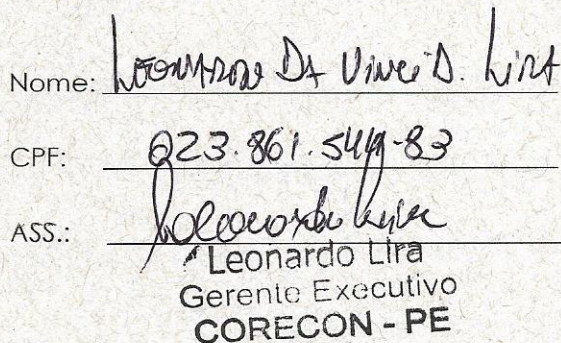 Nome: Leonardo Da Vinci D. Lira
CPF: 023.861.544-83
ASS.:
Leonardo Lira
Gerente Executivo
CORECON - PE